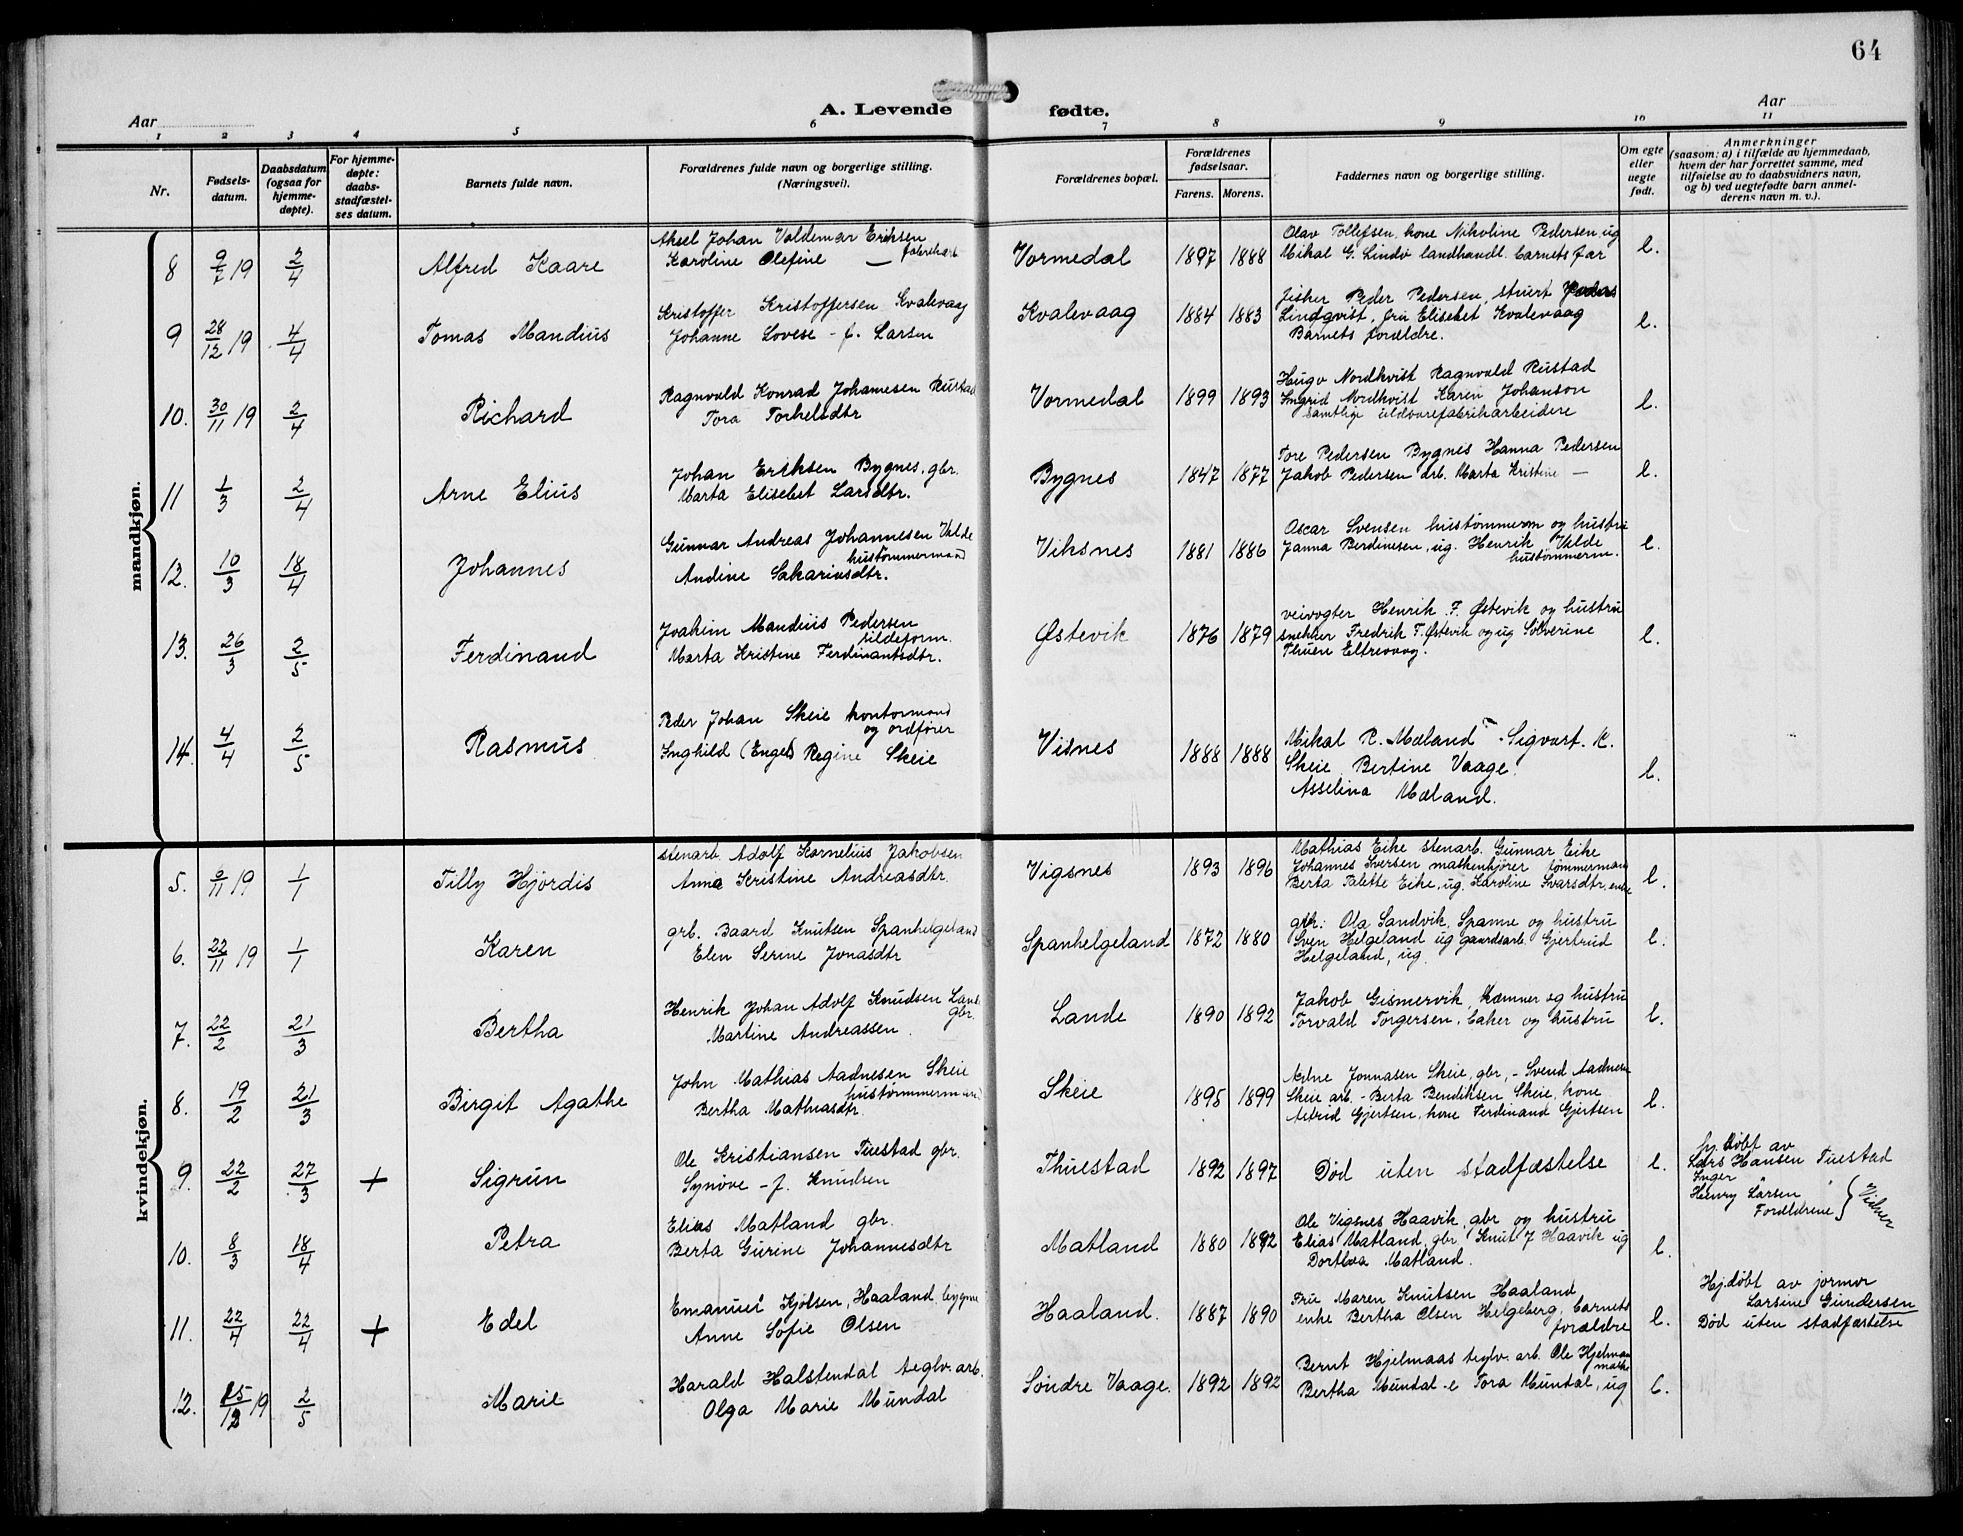 64
A. Levende fødte.
Aar
Aar
1 2 3 4 5 6 7 8 9 10 11
Nr.
Fødsels-
datum.
Daabsdatum
(ogsaa for
hjemme-
døpte).
For hjemme-
døpte:
daabs-
stadfæstel-
ses datum.
Barnets fulde navn.
Forældrenes fulde navn og borgerlige stilling.
(Næringsvei).
Forældrenes bopæl.
Forældrenes
fødselsaar.
Farens. Morens.
Faddernes navn og borgerlige stilling.
Om egte
eller
uegte
født.
Anmerkninger
(saasom: a) i tilfælde av hjemmedaab,
hvem der har forrettet samme, med
tilføielse av to daabsvidners navn,
og b) ved uegtefødte barn anmel-
derens navn m. v.).
mandkjøn.
8 9/7 19 2/4 Alfred Kaare
Aksel Johan Valdemar Eriksen
Karoline Olefine —
Vormedal 1897 1888
Olav Tollefsen, kone Nikoline Pedersen, ug
Mikal G. Lindø landhandl. barnets far
e.
9 28/12 19 4/4 Tomas Mandius
Kristoffer Kristoffersen Kvalevaag
Johanne Lovise - f. Larsen
Kvalevaag 1884 1883
fisker Peder Pedersen, stuert
Lindqvist, fru Elisebet Kvalevaag
Barnets forældre.
e.
10. 30/11 19 2/4 Richard
Ragnvald Konrad Johannesen Rustad
Tora Torkelsdtr
Vormedal 1899 1893
Hugo Nordkvist Ragnvald Rustad
Ingrid Nordkvist Karen Johanson
samtlige uldvarefabrikarbeidere
e.
11 1/3 2/4 Arne Elius
Johan Eriksen Bygnes, gbr.
Marta Elisebet Larsdtr.
Bygnes 1847 1877
Tore Pedersen Bygnes Hanna Pedersen
Jakob Pedersen arb. Marta Kristine —
e.
12. 10/3 18/4 Johannes
Gunnar Andreas Johannesen Valde
hustømmermand
Andine Sakariasdtr.
Viksnes 1881 1886
Oscar Svensen hustømmerm og hustru
Janna Berdinesen, ug. Henrik Valde
hustømmerm.
e.
13. 26/3 2/5 Ferdinand
Joakim Mandius Pedersen
sildeform.
Marta Kristine Ferdinantsdtr.
Østevik 1876 1879
veivogter Henrik F. Østevik og hustru
snekker Fredrik T. Østevik og ug Sølverine
Thuen Eltrevaag.
e.
14. 4/4 2/5 Rasmus
Peder Johan Skeie kontormand
og ordfører
Inghild (Engel) Regine Skeie
Visnes 1888 1888
Mikal R. Mæland - Sigvart. K.
Skeie Bertine Vaage.
Asselina Mæland.
e.
kvindekjøn.
5. /11 19 1/1 Tilly Hjørdis
stenarb. Adolf Kornelius Jakobsen
Anna Kristine Andreasdtr.
Vigsnes 1893 1896
Mathias Eike stenarb. Gunnar Eike
Johannes Iversen maskenkjører tømmermand
Berta Talette Eike, ug. Karoline Ivarsdtr, enke
e.
6. 22/11 19 1/1 Karen
grb. Baard Knutsen Spanhelgeland
Elen Serine Jonasdtr
Spanhelgeland 1872 1880
gbr: Ola Sandvik, Spanne og hustru
Sven Helgeland ug gaardsarb. Gjertrud
Helgeland, ug.
e.
7. 22/2 21/3 Bertha
Henrik Johan Adolf Knudsen Lande
gbr.
Martine Andreassen.
Lande 1890 1892
Jakob Gismervik, kæmner og hustru
Torvald Torgersen, baker og hustru
e.
8. 19/2 21/3 Birgit Agathe
John Mathias Aadnesen Skeie
hustømmermand
Bertha Mathiasdtr.
Skeie 1895 1899
Adne Jonnasen Skeie, gbr, - Svend Aadnesen
Skeie arb - Berta Bendiksen Skeie, kone
Astrid Gjertsen, kone Ferdinand Gjertsen
e.
9. 22/2 27/3 + Sigrun
Ole Kristiansen Tuestad gbr.
Synøve - f. Knudsen
Thuestad 1892 1897
Død uten stadfæstelse
e.
hj. døbt av
Lars Hansen Tuestad
Inger "
Henry Larsen "
Forældrene } Vidner
10. 8/3 18/4 Petra
Elias Matland gbr.
Berta Gurine Johannesdtr
Matland 1880 1892
Ole Vigsnes Haavik, gbr og hustru
Elias Matland, gbr. Knut J Haavik ug
Dorthea Matland.
e.
11. 22/4 22/4 + Edel
Emanuel Kjølsen, Haaland, bygnm
Anne Sofie Olsen
Haaland. 1887 1890
Fru Maren Knutsen Haaland
enke Bertha Olsen Helgeberg, barnets
forældre
e.
Hj.døbt av jormor
Larsine Gundersen
Død uten stadfæstelse
12. 15/12 19 2/5 Marie
Harald Halstendal teglv. arb.
Olga Marie Mundal
Søndre Vaage. 1892 1892
Bernt Hjelmaas teglv. arb. Ole Hjelmaas
Bertha Mundal - e Tora Mundal, ug
e.